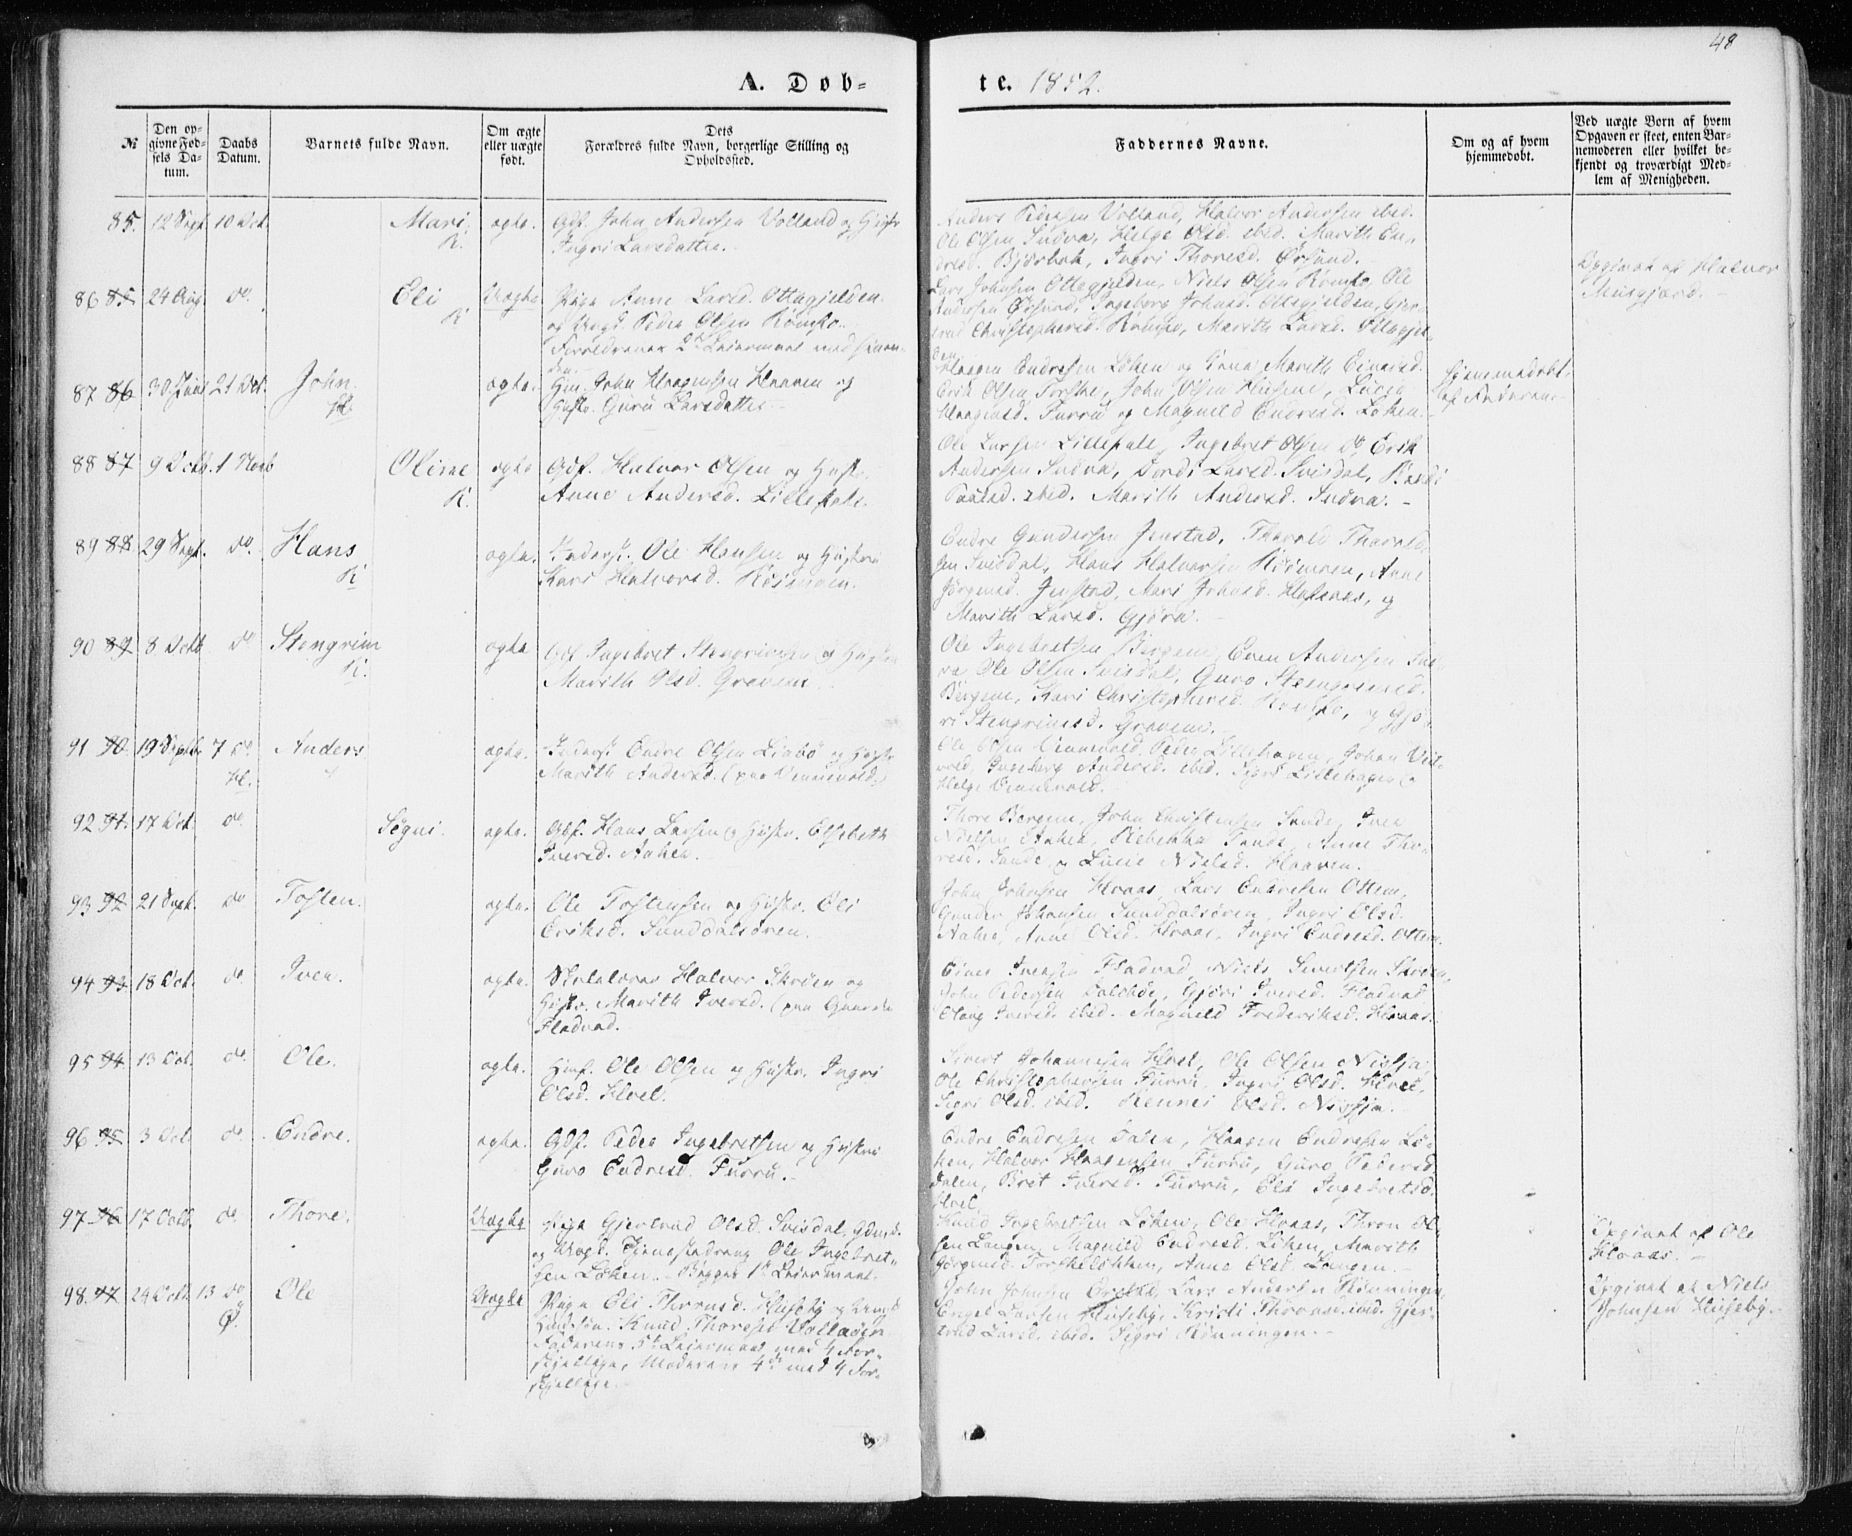 48
A. Døb-
te. 1852.
№
Den op-
givne Fød-
sels Da-
tum.
Daabs
Datum.
Barnets fulde Navn.
Om ægte
eller uægte
født.
Dets
Forældres fulde Navn, borgerlige Stilling og
Opholdssted.
Faddernes Navne.
Om og af hvem
hjemmedøbt.
Ved uægte Børn af hvem
Opgaven er skeet, enten Bar-
nemoderen eller hvilket be-
kjendt og troværdigt Med-
lem af Menigheden.
85. 12 Sept. 10 Oct. Mari. ægte. Gdf. John Andersen Volland og Hustr
K. Ingri Larsdatter.
Anders Pedersen Volland, Halvor Andersen ibid.
Ole Olsen Indra, Helge Olsd. ibid. Marith En-
dresd. Bjørbak, Ingri Thoresd. Ørsund.
86 85 24 Aug. do. Eli Uægte Pige Anne Larsd. Ottegjelden
K og Ungk. Peder Olsen Romfo.
Forældrenes 2det Leiermaal med hinan-
den.
Lars Johnsen Ottegjelden, Niels Olsen Romfo, Ole
Andersen Ørsund, Ingeborg Johnsd. Ottegjelden, Gjer-
trud Christophersd. Romfo, Marith Larsd. Ottegjel-
den.
Opgivet af Halvor
Musgjerd.
87 86 30 21 Oct. John. ægte. Hm. John Haagensen Haaven og
Hustr. Guru Larsdatter.
Haagen Endresen Løken og Kona Marith Einarsd.
Erik Olsen Torske, John Olsen Lucie
Haagensd. Furru og Magnild Endresd. Løken.
Hjemmedøbt
af Faderen.
88 87 9 Octb. 1 Novb Oline ægte Gdf. Halvor Olsen og Hustr.
K. Anne Andersd. Lillefale.
Ole Larsen Lillefale, Ingebret Olsen do, Erik
Andersen Indra, Dordi Larsd. Svisdal, Randi
Paulsd. ibid. Marith Andersd. Indra.
89 88 29 Sept. do. Hans ægte. Inderst. Ole Hansen og Hustru
K Kari Halvorsd. Røsmoen.
Endre Gundersen Jenstad, Thorald Thorald-
sen Svisdal, Hans Halvorsen Anne
Jørgensd. Jenstad, Mari Johnsd. og
Marith Larsd. Gjøra.
90 89 8 Octb do Stengrim ægte Gdf Ingebret Stengrimsen og Hustru
K. Marith Olsd. Gravem.
Ole Ingebretsen Bergem, Even Andersen
Ole Olsen Svisdal, Guro Stengrimsd.
Bergem, Kari Christophersd. Romfo, og Gjø-
ri Stengrimsd. Gravem.
91 90 19 Septb 7 do Anders ægte. Inderst Endre Olsen Liabø og Hustr
Hl. Marith Andersd. (paa Vennevold)
Ole Olsen Vennevold, Peder Lillehagen, Johan
Ingeborg Andersd. ibid. Sigri Lillehagen og
Helge Vennevold.
92 91. 17 Oct. do. Segni. ægte. Gdf. Hans Larsen og Hustr. Elsebeth
Iversd. Aaker.
Thore Bergem, John Christensen Sande, Iver
Nielsen Aaker, Rebekka Sande, Anne Tho-
resd. Sande, og Lucie Nielsd. Haaven.
93 92 21 Sept. do Tosten. ægte. Ole Tostensen og Hustr. Eli
Eriksd. Sunddalsøren.
John Johnsen Hraas, Lars Endresen Ottem,
Gunder Johansen Sunddalsøren, Ingri Olsd.
Aaker, Anne Olsd. Hraas, Ingri Endresd. Ottem.
94 93 18 Oct. do. Iver. ægte. Skolelærer Halvor Skrøen og
Hustr. Marith Iversd. (paa Gaarden
Fladvad.
Einar Iversen Fladvad, Niels Sivertsen Skrøen,
John Pedersen Gjøri Iversd. Fladvad
Olaug Iversd. ibid. Magnild Frederiksd. Hraas.
95 94 13 Oct. do. Ole. ægte. Hmf. Ole Olsen og Hustr. Ingri
Olsd. Hoel.
Sivert Johannesen Hoel, Ole Olsen Nisja,
Ole Christophersen Furru, Ingri Olsd. Hoel.
Sigri Olsd. ibid. Rennei Olsd. Nisja.
96 95 3 Oct. do Endre. ægte. Gdf. Peder Ingebretsen og Hustru
Guro Endresd. Furru.
Endre Endresen Dalen, Haagen Endresen Lø-
ken, Halvor Haagensen Furru, Guro Pedersd.
Dalen, Brit Iversd. Furru, Eli Ingebretsd.
Hoel.
97 96 17 Octb. do. Thore. Uægte Pige Gjertrud Olsd. Svisdal,
og Ungk. Tjenestedreng Ole Ingebret-
sen Løken. Begges 1ste Leiermaal.
Knud Ingebretsen Løken, Ole Hraas, Thron Ol-
sen Langen, Magnild Endresd. Løken, Marith
Jørgensd. Torskeløkken, Anne Olsd. Langen.
Opgivet af Ole
Hraas.
98. 97 24 Octb. 13 do Ole Uægte Pige Eli Thronsd. Huseby og
Ø. Knud Thoresen Volløien
Faderens 5te Leiermaal med 4 For-
skjellige, Moderens 4de med 4 For-
skjellige.
John Johnsen Lars Andersen Rønningen
Engel Larsen Huseby, Kristi Thronsd. ibid. Gjer-
trud Larsd. ibid. Sigri Rønningen.
Opgivet af Niels
Johnsen Huseby.